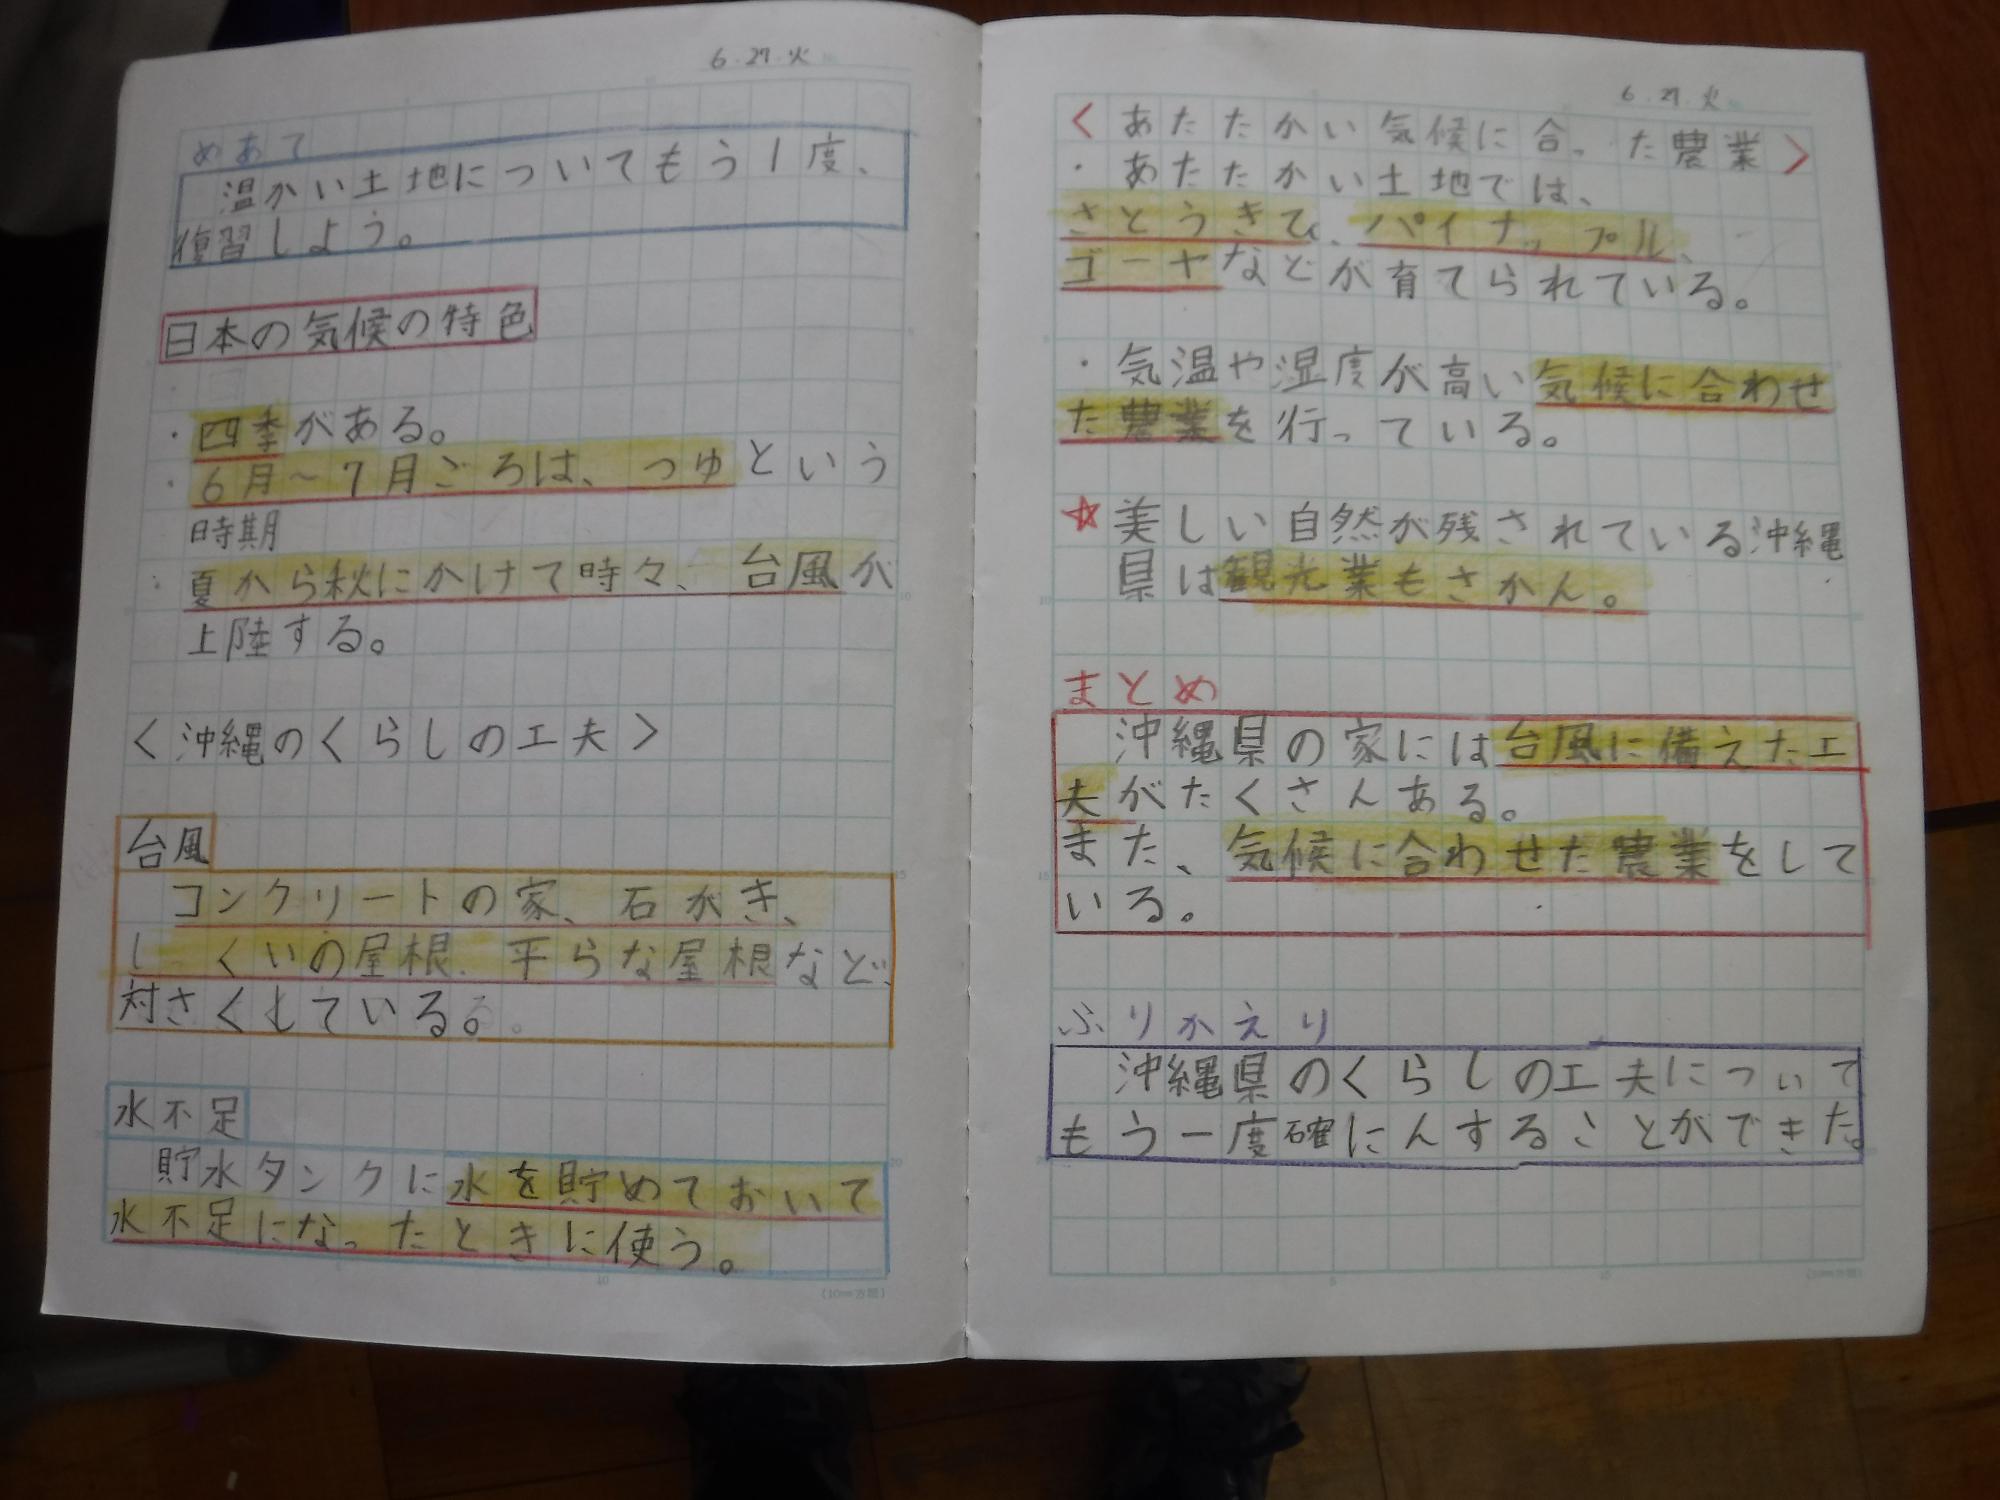 6.27.火
めあて
温かい土地についてもう1度、
復習しよう。
日本の気候の特色
・四季がある。
・6月〜7月ごろは、つゆという
時期
・夏から秋にかけて時々、台風が
上陸する。
＜沖縄のくらしの工夫＞
台風
コンクリートの家、石がき、
し くいの屋根、平らな屋根など、
対さくしている。
水不足
貯水タンクに水を貯めておいて
水不足になったときに使う。
(10mm方眼)
6.27.火
＜あたたかい気候に合った農業＞
・あたたかい土地では、
さとうきび、パイナップル、
ゴーヤなどが育てられている。
・気温や湿度が高い気候に合わせ
た農業を行っている。
☆美しい自然が残されている沖縄
県は観光業もさかん。
まとめ
沖縄県の家には台風に備えた工
夫がたくさんある。
また、気候に合わせた農業をして
いる。
ふりかえり
沖縄県のくらしの工夫について
もう一度確にんすることができた。
(10mm方眼)